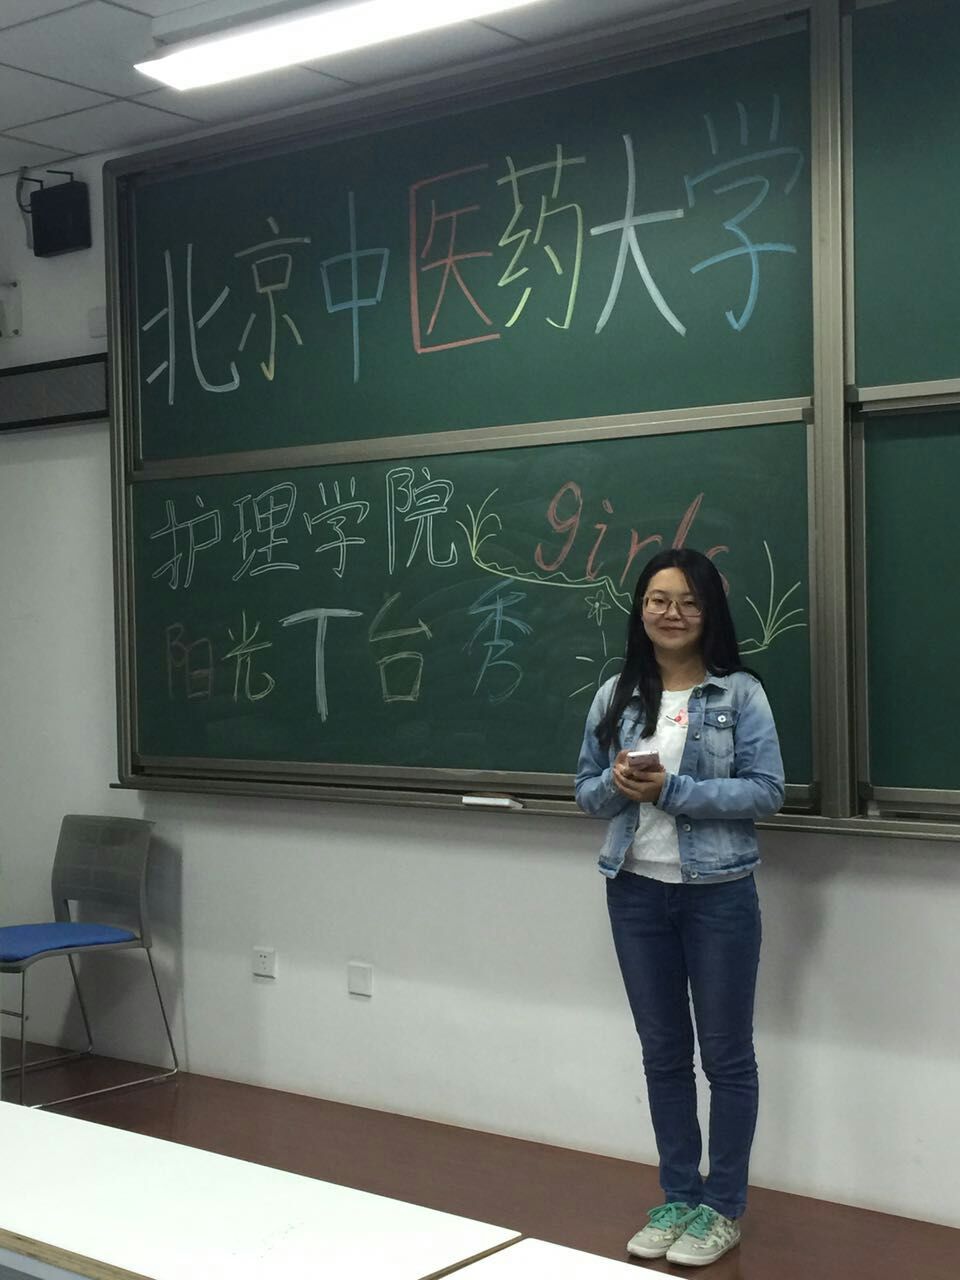 北京中医药大学
护理学院 girls
阳光丁台秀